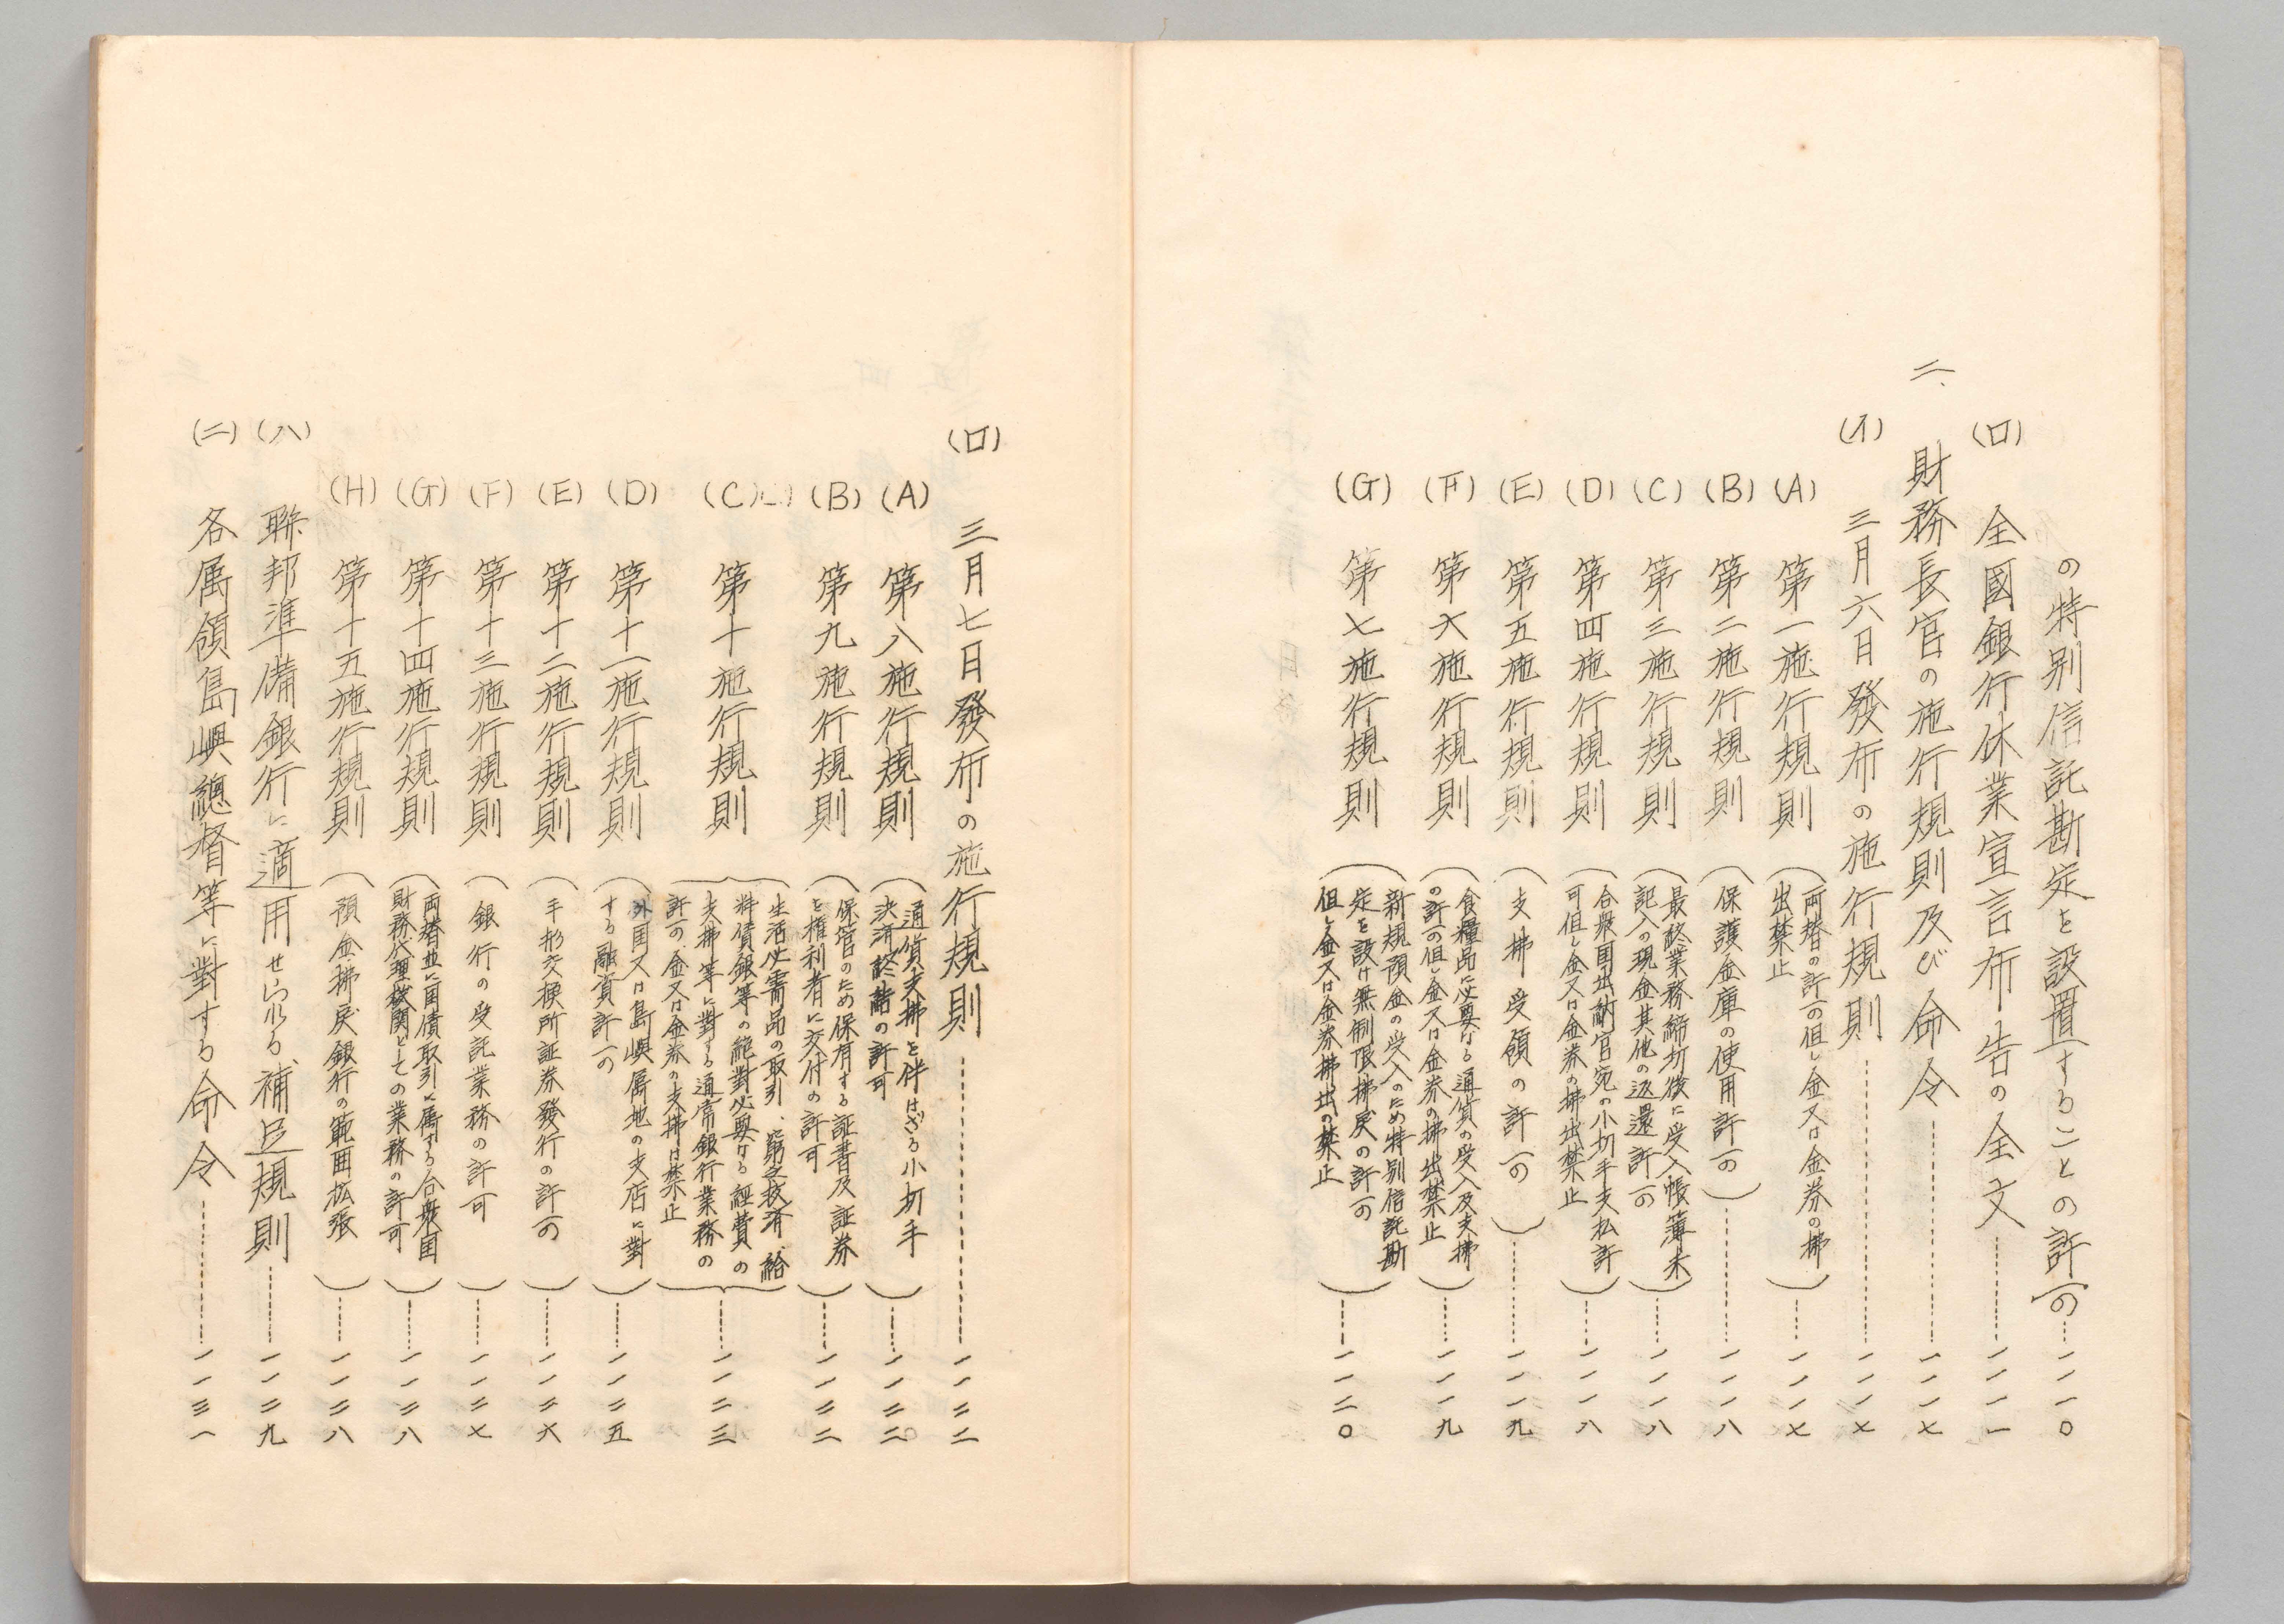 の特別信託勘定を設置することの許可……一一一〇
(ロ) 全國銀行休業宣言布告の全文……一一一一
二、財務長官の施行規則及び命令……一一一七
(イ) 三月六日發布の施行規則……一一一七
(A) 第一施行規則（両替の許可但し金又は金券の拂
出禁止）……一一一七
(B) 第二施行規則（保護金庫の使用許可）……一一一八
(C) 第三施行規則（最終業務締切後に受入帳簿未
記入の現金其他の返還許可）……一一一八
(D) 第四施行規則（合衆国出納官宛の小切手支払許
可但し金又は金券の拂出禁止）……一一一八
(E) 第五施行規則（支拂受領の許可）……一一一九
(F) 第六施行規則（食糧品に必要なる通貨の受入及支拂
の許可但し金又は金券の拂出禁止）……一一一九
(G) 第七施行規則（新規預金の受入のため特別信託勘
定を設け無制限拂戻の許可
但し金又は金券拂出の禁止）……一一二〇
(ロ) 三月七日發布の施行規則……一一二二
(A) 第八施行規則（通貨支拂を伴はざる小切手
決済終結の許可）……一一二二
(B) 第九施行規則（保管のため保有する証書及証券
を権利者に交付の許可）……一一二二
(C) 第十施行規則（生活必需品の取引、窮乏救済、給
料賃銀等の絶對必要なる経費の
支拂等に對する通常銀行業務の
許可、金又は金券の支拂は禁止）……一一二三
(D) 第十一施行規則（外国又は島嶼属地の支店に對
する融資許可）……一一二五
(E) 第十二施行規則（手形交換所証券發行の許可）……一一二六
(F) 第十三施行規則（銀行の受託業務の許可）……一一二七
(G) 第十四施行規則（両替並に国債取引に属する合衆国
財務代理機関としての業務の許可）……一一二八
(H) 第十五施行規則（預金拂戻銀行の範囲拡張）……一一二八
(ハ) 聯邦準備銀行に適用せらる補足規則……一一二九
(ニ) 各属領島嶼總督等に對する命令……一一三一